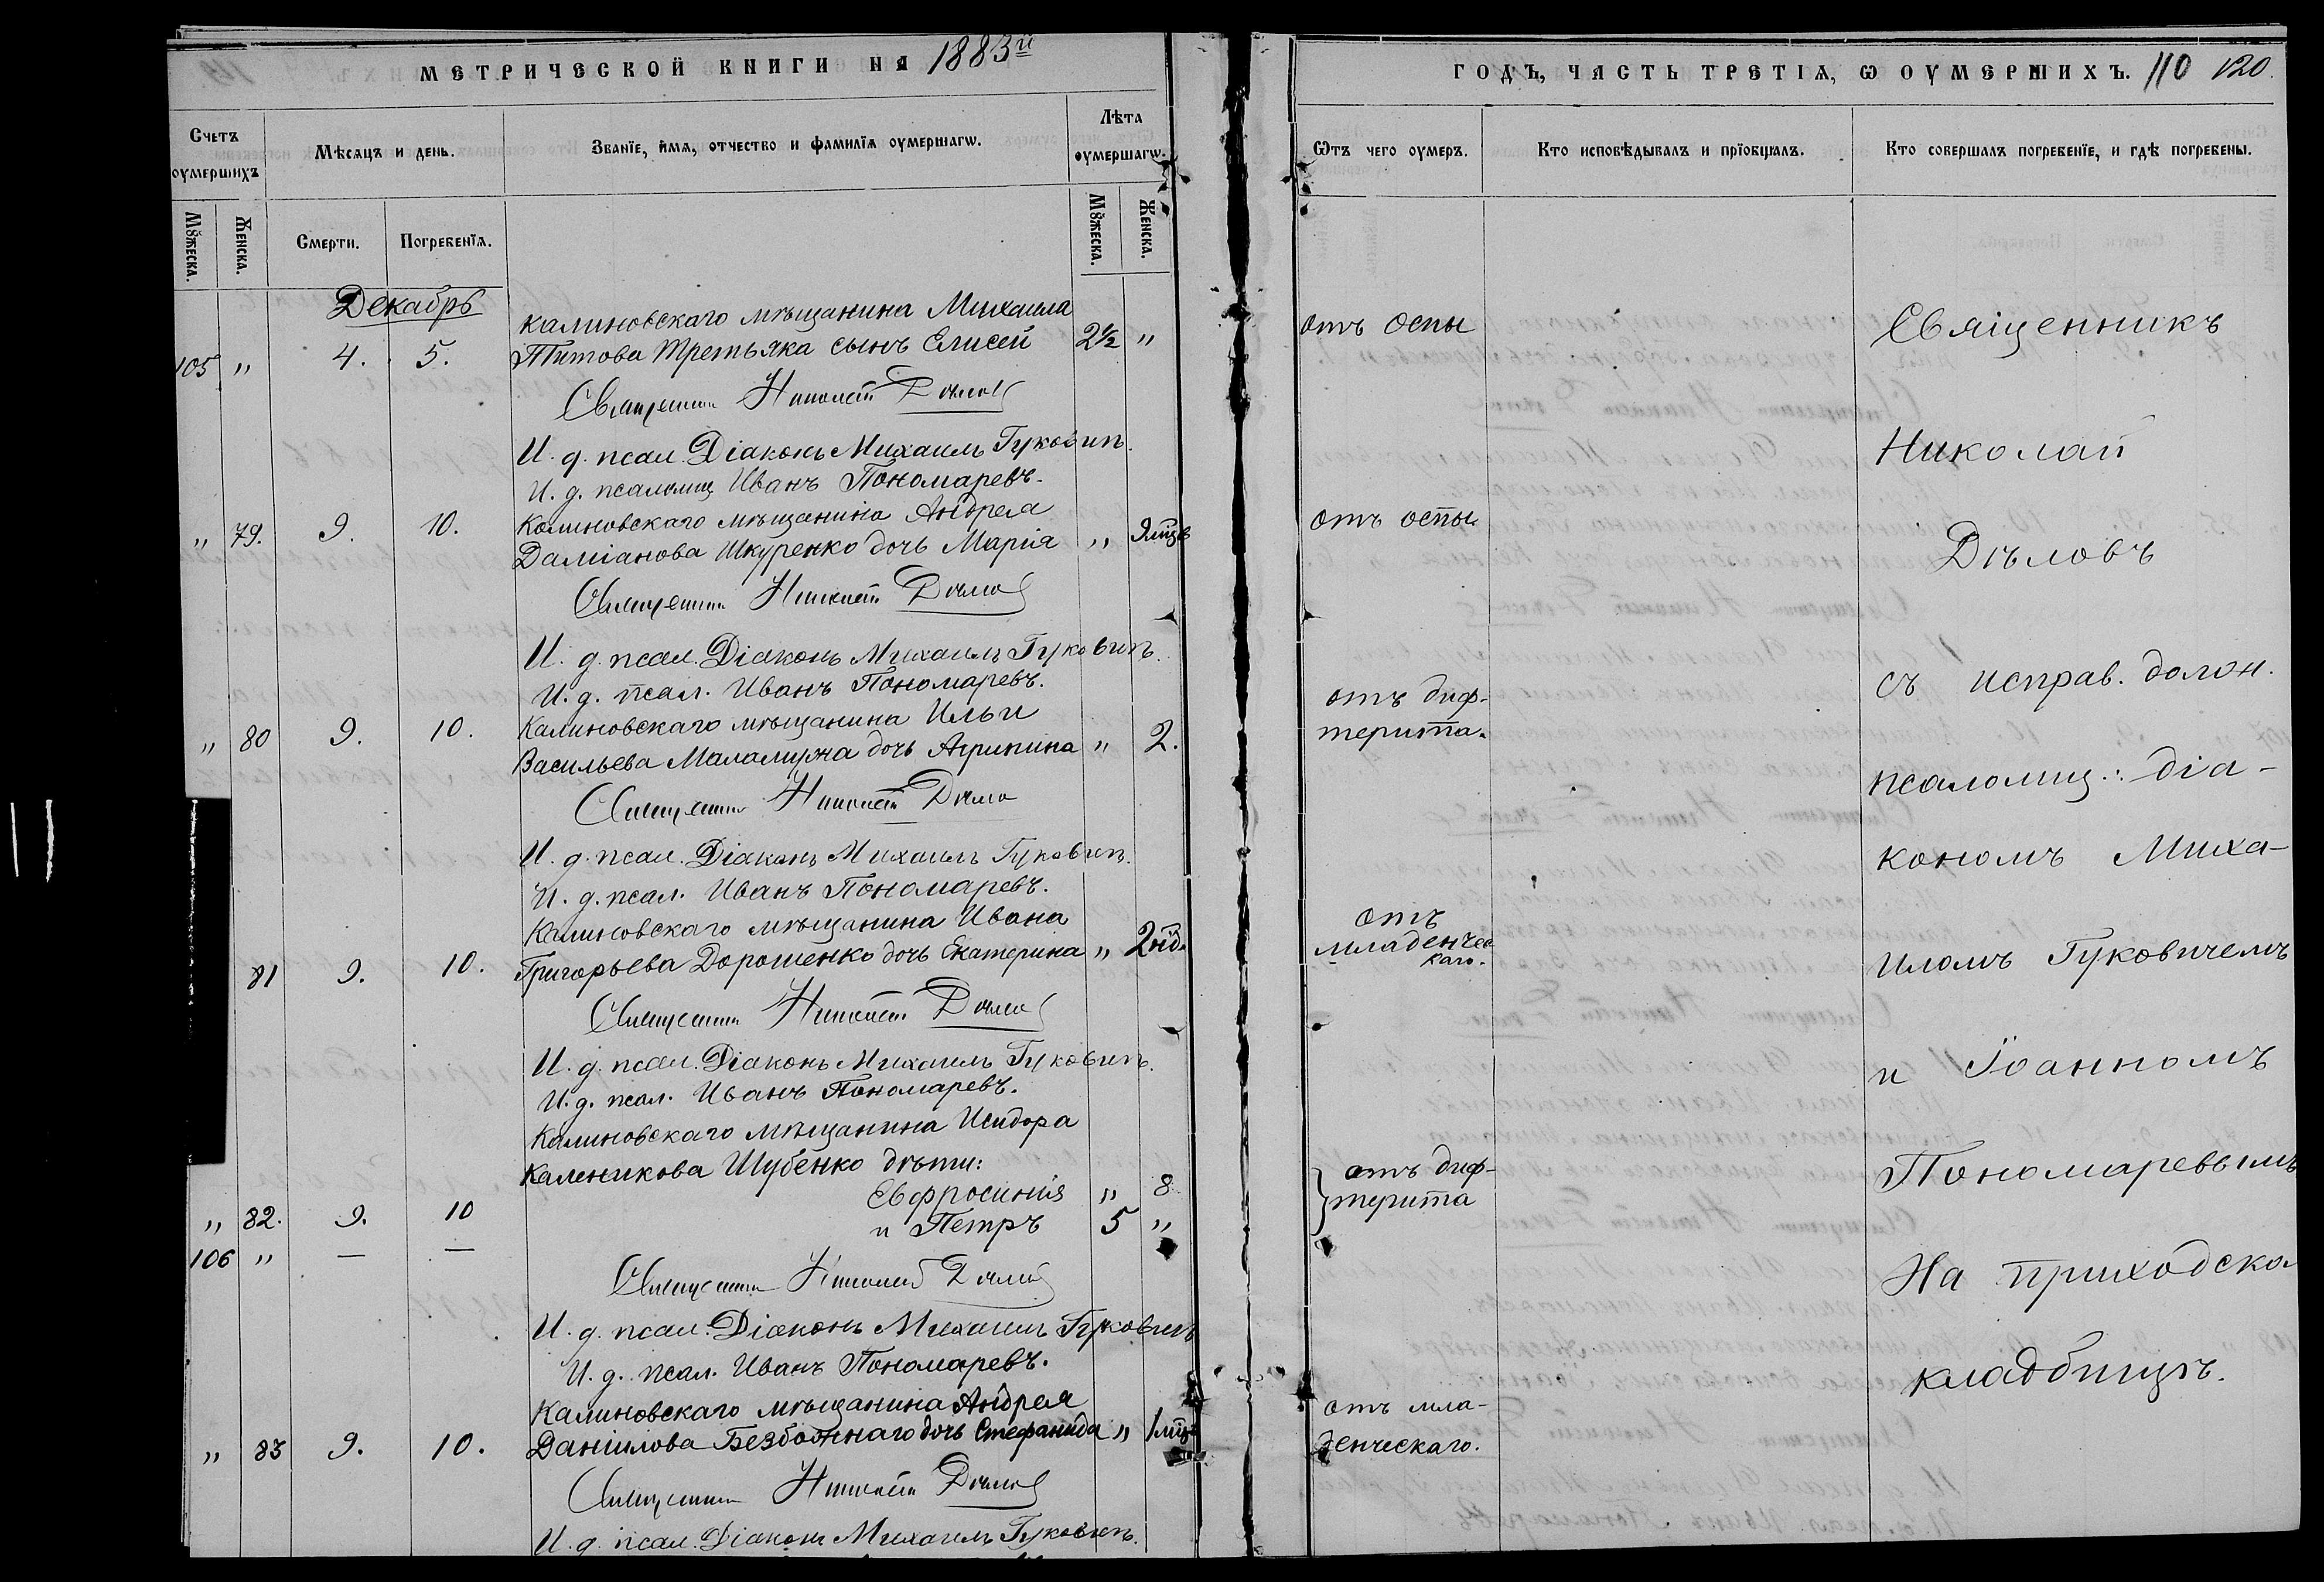 МЕТРИЧЕСКОЙ КНИГИ НА 1883й
Счетъ оумершихъ
Мѣсяцъ и день.
Званїе, имя, отчество и фамилїя оумершагѡ.
Лѣта оумершагѡ.
Мꙋжеска.
Женска.
Смерти.
Погребенїя.
Мꙋжеска.
Женска.
Декабрь
Калиновскаго мѣщанина Михаила
105 " 4. 5. Титова Третьяка сынъ Елисей 2½ "
Священникъ Николай Дѣловъ
И. д. псал. Діаконъ Михаилъ Гуковичъ.
И. д. псаломщ Иванъ Пономаревъ.
Калиновскаго мѣщанина Андрея
" 79. 9. 10. Даміанова Шкуренко дочь Марія " 9 мцъ
Священникъ Николай Дѣловъ
И. д. псал. Діаконъ Михаилъ Гуковичъ.
И. д. псал. Иванъ Пономаревъ.
Калиновскаго мѣщанина Ильи
" 80 9. 10. Васильева Маламужа дочь Агрипина " 2.
Священникъ Николай Дѣловъ
И. д. псал. Діаконъ Михаилъ Гуковичъ.
И. д. псал. Иванъ Пономаревъ.
Калиновскаго мѣщанина Ивана
81 9. 10. Григорьева Дорошенко дочь Екатерина " 2 нд.
Священникъ Николай Дѣловъ
И. д. псал. Діаконъ Михаилъ Гуковичъ.
И. д. псал. Иванъ Пономаревъ.
Калиновскаго мѣщанина Исидора
Каленикова Шубенко дѣти:
" 82. 9. 10 Евфросинія " 8
106 " — — и Петръ 5 "
Священникъ Николай Дѣловъ
И. д. псал. Діаконъ Михаилъ Гуковичъ
И. д. псал. Иванъ Пономаревъ.
Калиновскаго мѣщанина Андрея
" 83 9. 10. Даніилова Безбожнаго дочь Стефанида " 1 мцъ
Священникъ Николай Дѣловъ
И. д. псал. Діаконъ Михаилъ Гуковичъ.
ГОДЪ, ЧАСТЬ ТРЕТІЯ, Ѡ ОУМЕРШИХЪ. 110 120.
Ѿтъ чего оумеръ.
Кто исповѣдывалъ и прїобщалъ.
Кто совершалъ погребенїе, и гдѣ погребены.
отъ оспы
отъ оспы.
отъ диф-
терита.
отъ
младенчес-
каго.
отъ диф-
терита
отъ мла-
денческаго.
Священникъ
Николай
Дѣловъ
съ исправ. долж.
псаломщ.: діа-
кономъ Миха-
иломъ Гуковичемъ
и Іоанномъ
Пономаревымъ
На приходско.
кладбищѣ.